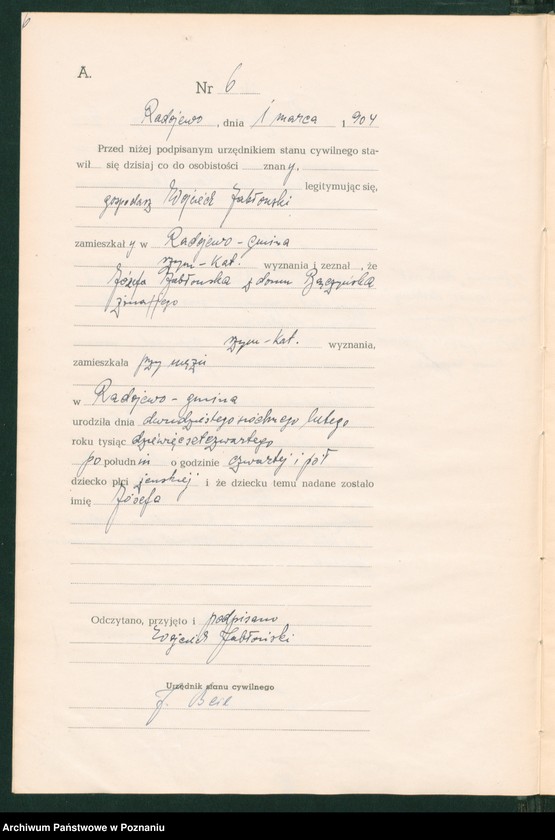 6
A.
Nr 6
Radojewo, dnia 1 marca 1904
Przed niżej podpisanym urzędnikiem stanu cywilnego sta-
wił się dzisiaj co do osobistości znany,
legitymując się,
gospodarz Wojciech Jabłoński
zamieszkały w Radojewo - gmina
rzym-kat. wyznania i zeznał, że
Józefa Jabłońska z domu
rzym-kat. wyznania,
zamieszkała przy mężu
w Radojewo - gmina
urodziła dnia dwudziestego lutego
roku tysiąc dziewięćsetczwartego
po południu o godzinie czwartej i pół
dziecko płci żeńskiej i że dziecku temu nadane zostało
imię Józefa
Odczytano, przyjęto i podpisano
Wojciech Jabłoński
Urzędnik stanu cywilnego
J.
Archiwum Państwowe w Poznaniu